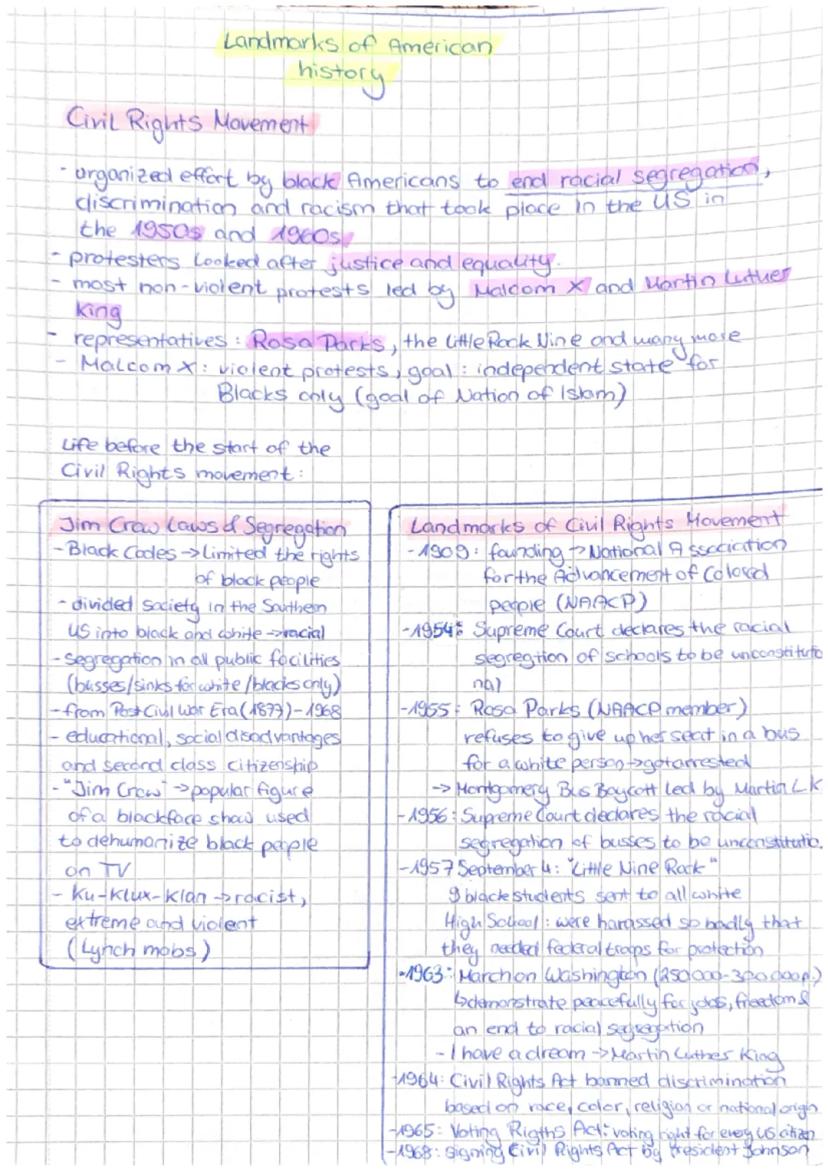 Landmarks of American
history
Civil Rights Movement
- organized effort by black Americans to end racial segregation,
discrimination and racism that took place in the US in
the 1950s and 1960s
- protesters looked after justice and equality.
- most non-violent protests led by Malcom X and Martin Luther
King
- representatives: Rosa Parks, the Little Rock Nine and many more
- Malcom X: violent protests, goal: independent state for
Blacks only (goal of Nation of Islam)
Life before the start of the
Civil Rights movement:
Jim Crow Laws & Segregation
- Black Codes → Limited the rights
of black people
- divided society in the Southern
US into black and white → racial
- segregation in all public facilities
(busses/sinks for white/blacks only)
- from Post Civil War Era (1877) - 1968
- educational, social disadvantages
and second class citizenship
- "Jim Crow" → popular figure
of a blackface show used
to dehumanize black people
on TV
- Ku-Klux-Klan → racist,
extreme and violent
(Lynch mobs)
Landmarks of Civil Rights Movement
- 1909: founding → National Association
for the Advancement of Colored
people (NAACP)
- 1954: Supreme Court declares the racial
segregtion of schools to be unconstitutio
nal
- 1955: Rosa Parks (NAACP member)
refuses to give up her seat in a bus
for a white person → got arrested
→ Montgomery Bus Boycott led by Martin LK
- 1956: Supreme Court declares the racial
segregation of busses to be unconstitutio.
- 1957 September 4: "Little Nine Rock"
9 black students sent to all white
High School: were harassed so badly that
they needed federal troops for protection
- 1963: March on Washington (250 000-300 000 p.)
↳ demonstrate peacefully for jobs, freedom &
an end to racial segregation
- I have a dream → Martin Luther King
- 1964: Civil Rights Act banned discrimination
based on race, color, religion or national origin
- 1965: Voting Rigths Act: voting right for every US citizen
- 1968: signing Civil Rights Act by President Johnson